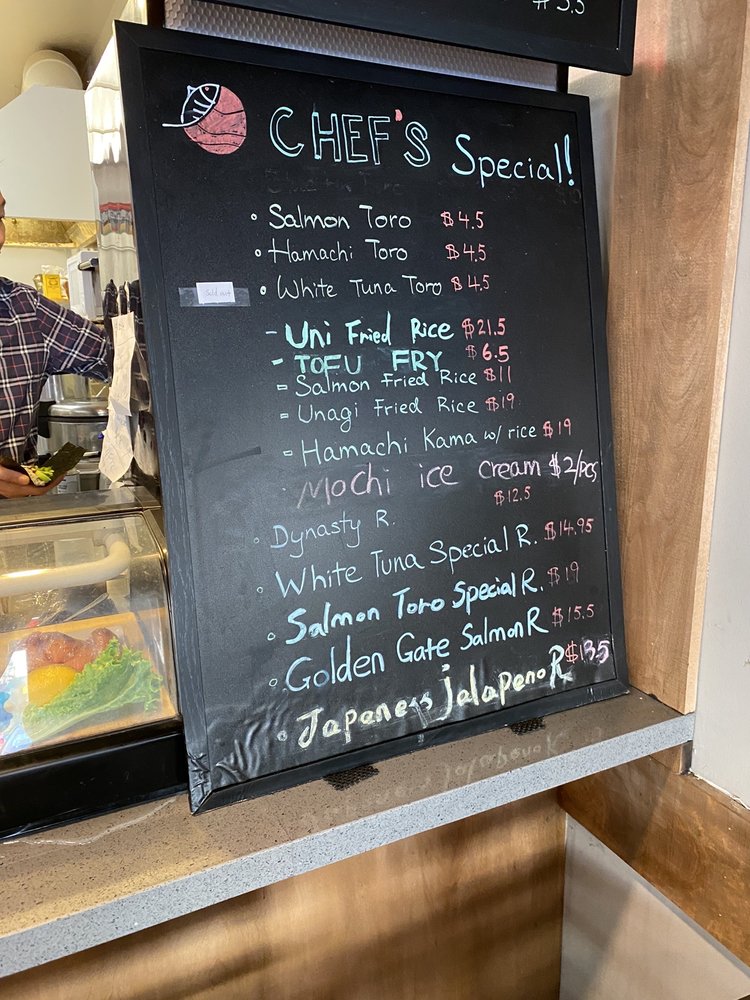 $5.5
CHEF'S Special!
Salmon Toro $4.5
Hamachi Toro $4.5
Sold out
White Tuna Toro $4.5
- Uni Fried Rice $21.5
- TOFU FRY $6.5
- Salmon Fried Rice $11
- Unagi Fried Rice $19
- Hamachi Kama w/ rice $19
Mochi ice cream $2/pcs
Dynasty R. $12.5
White Tuna Special R. $14.95
Salmon Toro Special R. $19
Golden Gate Salmon R $15.5
Japaness jalapeno R $13.5